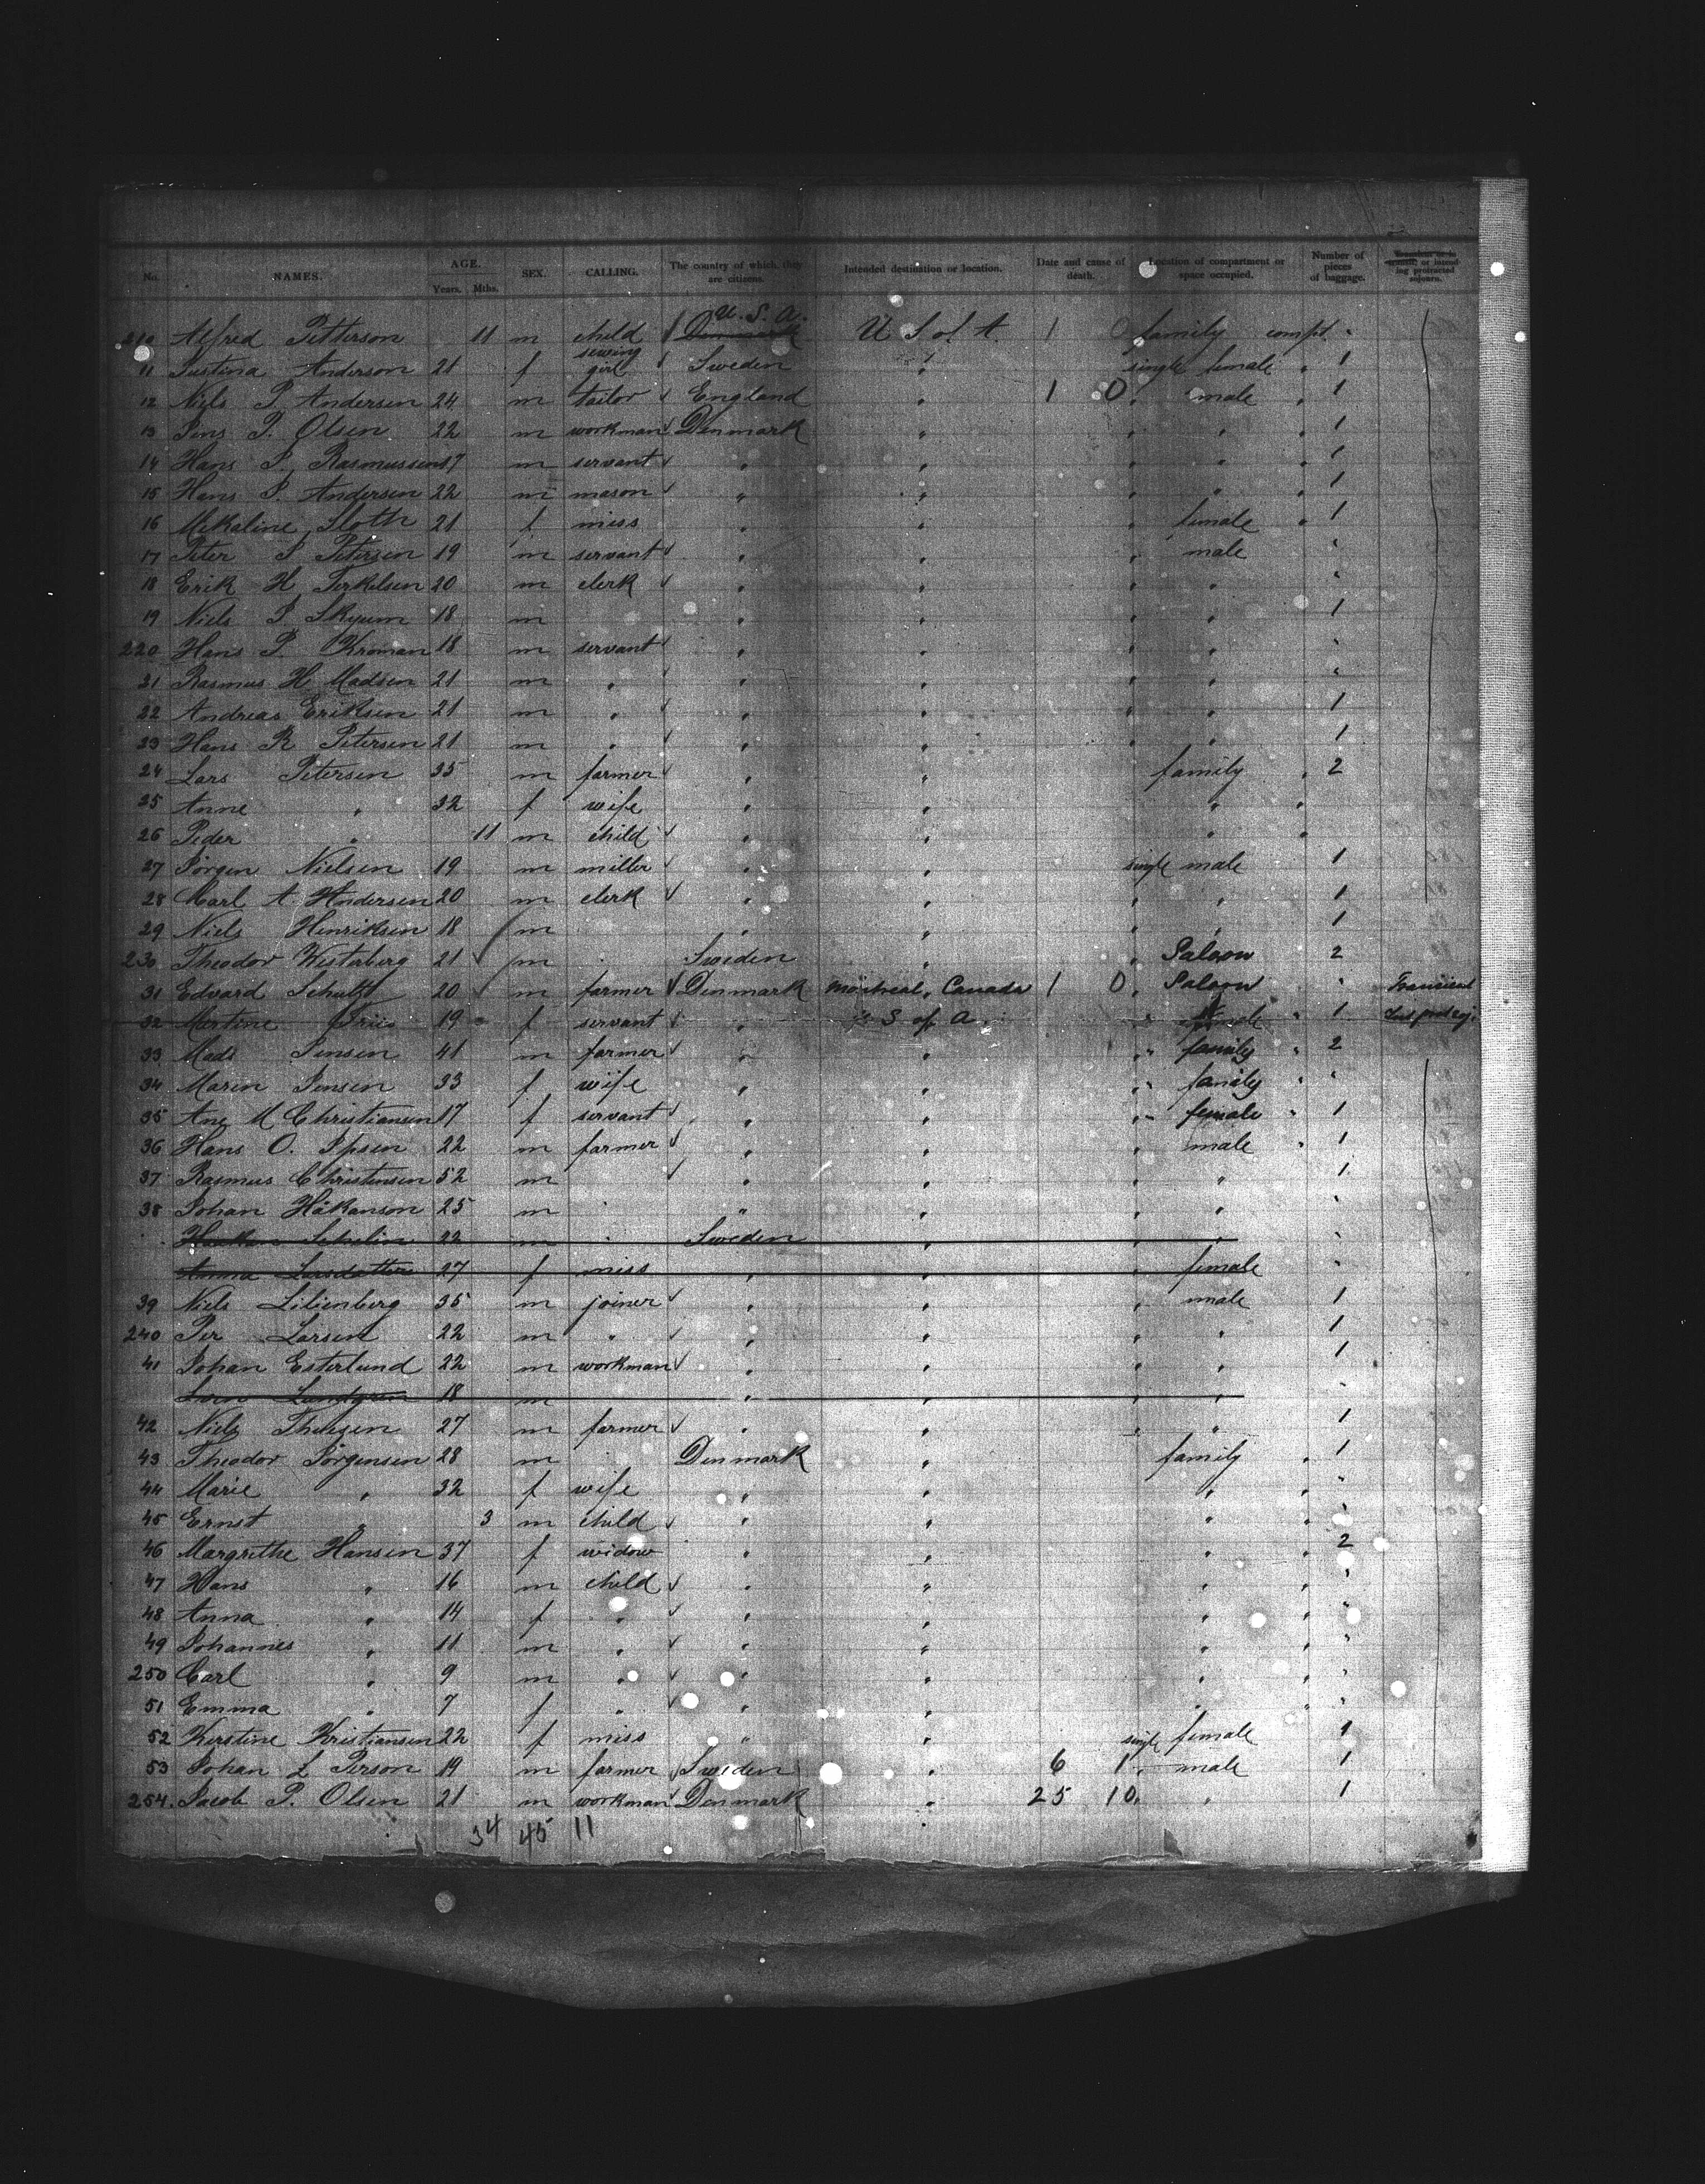 No. NAMES. AGE. Years. Mths. SEX. CALLING. The country of which they are citizens. Intended destination or location. Date and cause of death. Location of compartment or space occupied. Number of pieces of baggage. or intending protracted sojourn.
210 Alfred Petterson 11 m child Denmark U. S. A. U S of A. 1 0 family compt. "
11 Justina Anderson 21 f sewing girl Sweden " single female " 1
12 Niels P. Andersen 24 m tailor England " 1 0 " male " 1
13 Jens P. Olsen 22 m workman Denmark " " " 1
14 Hans P. Rasmussen 17 m servant " " " " 1
15 Hans P. Andersen 22 m mason " " " " " 1
16 Mikaline Sloth 21 f miss " " " female " 1
17 Peter P Petersen 19 m servant " " " male "
18 Erik H Terkilsen 20 m clerk " " " " "
19 Niels P. Skyum 18 m " " " " 1
220 Hans P. Kroman 18 m servant " " " " "
21 Rasmus H Madsen 21 m " " " " " "
22 Andreas Eriksen 21 m " " " " " 1
23 Hans R Petersen 21 m " " " " " 1
24 Lars Petersen 35 m farmer " " family " 2
25 Anne " 32 f wife " " " "
26 Peder " 11 m child " " " "
27 Jörgen Nielsen 19 m miller " " single male 1
28 Carl A. Andersen 20 m clerk " " " " 1
29 Niels Henriksen 18 m " " " " 1
230 Theodor Westerberg 21 m Sweden " " Saloon 2
31 Edvard Schultz 20 m farmer Denmark Montreal, Canada 1 0 " Saloon " Transient
32 Mertine Friis 19 f servant " U S of A. " female " 1
33 Mads Jensen 41 m farmer " " " family " 2
34 Maren Jensen 33 f wife " " " family " "
35 Ane M Christiansen 17 f servant " " " female " 1
36 Hans O. Ipsen 22 m farmer " " " male " 1
37 Rasmus Christensen 52 m " " " " 1
38 Johan Håkanson 25 m " " " " " "
22 m " Sweden " " " "
Anna Larsdotter 27 f miss " " " female "
39 Niels Lilienberg 35 m joiner " " " male 1
240 Per Larsen 22 m " " " " " 1
41 Johan Esterlund 22 m workman " " " " 1
Lundgren 18 m " " " " "
42 Niels Thuesen 27 m farmer " " " " 1
43 Theodor Jörgensen 28 m " Denmark " family " 1
44 Marie " 32 f wife " " " " "
45 Ernst " 3 m child " " " " "
46 Margrethe Hansen 37 f widow " " " " 2
47 Hans " 16 m child " " " " "
48 Anna " 14 f " " " " " "
49 Johannes " 11 m " " " " " "
250 Carl " 9 m " " " " " "
51 Emma " 7 f " " " " "
52 Kirstine Kristiansen 22 f miss " " single female 1
53 Johan L Person 19 m farmer Sweden " 6 1 " male 1
254. Jacob P. Olsen 21 m workman Denmark " 25 10 " " 1
34 45 11